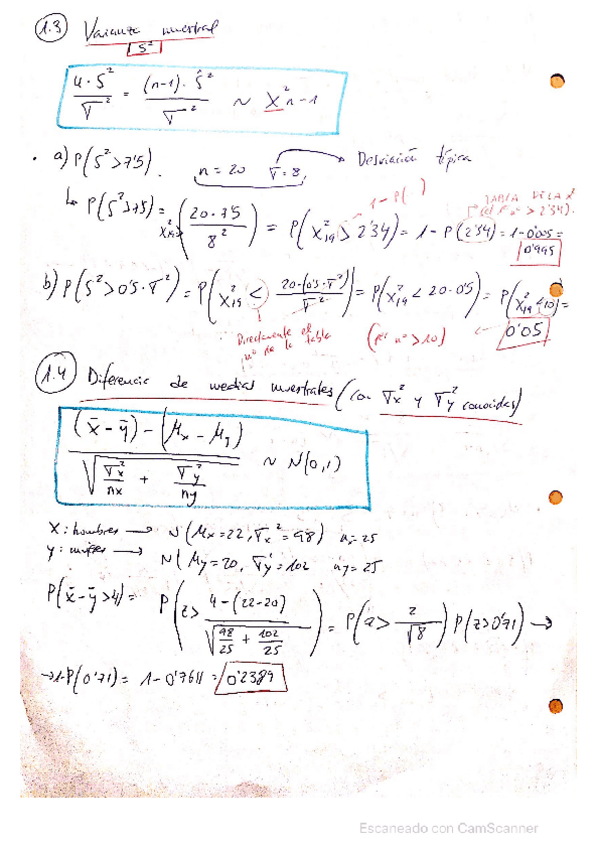 1.3 Varianza muestral
S²
n·S² / σ² = (n-1)·Ŝ² / σ² ~ χ² n-1
· a) P(S²>7'5). n=20 σ=8, → Desviación típica
1-P( )
TABLA DE LA χ²
↳ P(S²>7'5) = χ²19> (20·7'5 / 8²) = P(χ²19 > 2'34) = 1-P(2'34) = 1-0'005 =
0'995
b) P(S²>0'5·σ²) = P(χ²19 < 20·(0'5·σ²) / σ²) = P(χ²19 < 20·0'5) = P(χ²19 < 10) =
0'05
Directamente el
nº de la tabla
(nº > 10)
1.4 Diferencia de medias muestrales (con σx² y σy² conocidas)
(x̄-ȳ) - (μx - μy) / √(σx²/nx + σy²/ny) ~ N(0,1)
X: hombres → N(μx=22, σx²=98) n=25
y: mujeres → N(μy=20, σy²=102 ny=25
P(x̄-ȳ>4) = P(z> 4-(22-20) / √(98/25 + 102/25)) = P(z> 2/√8) P(z>0'71) →
→ 1-P(0'71) = 1-0'7611 = 0'2389
Escaneado con CamScanner